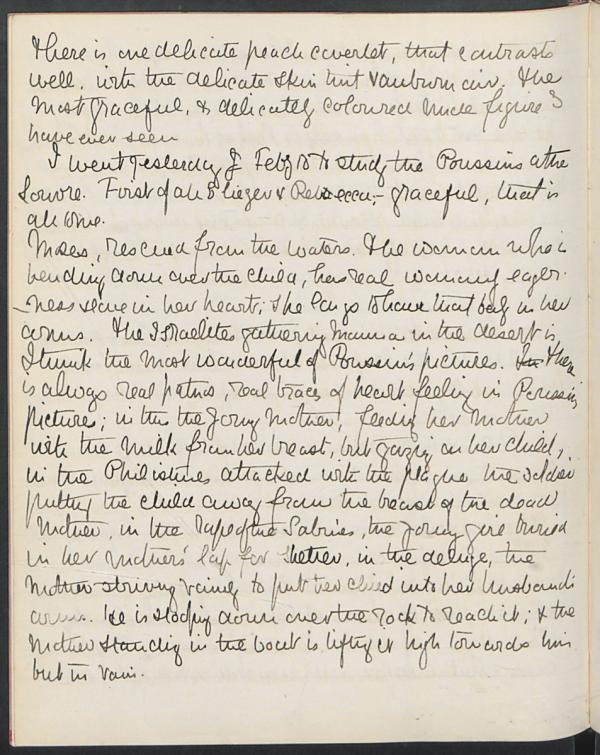 there is one delicate peach coverlet, that contrasts
well, with the delicate skin tint & auburn hair. The
most graceful, & delicately coloured nude figure I
have ever seen
I went yesterday, Feby 10 to study the Poussins at the
Louvre. First of all Eliezer & Rebecca,- graceful, that is
all to me.
Moses, rescued from the waters. The woman who is
bending down over the child, has real womanly eager-
-ness & love in her heart; she longs to have that baby in her
arms. The Israelites gathering Manna in the desert is,
I think the most wonderful of Poussin's pictures. There
is always real pathos, real traces of heart feeling in Poussin's
pictures; in this the young mother, feeding her mother
with the milk from her breast, but gazing on her child,
in the Philistines attacked with the plague the soldier
putting the child away from the breast of the dead
mother, in the Rape of the Sabines, the young girl buried
in her mother's lap for shelter, in the deluge, the
mother striving vainly to put her child into her husband's
arms. He is stooping down over the rock to reach it; & the
mother standing in the boat is lifting it high towards him
but in vain.